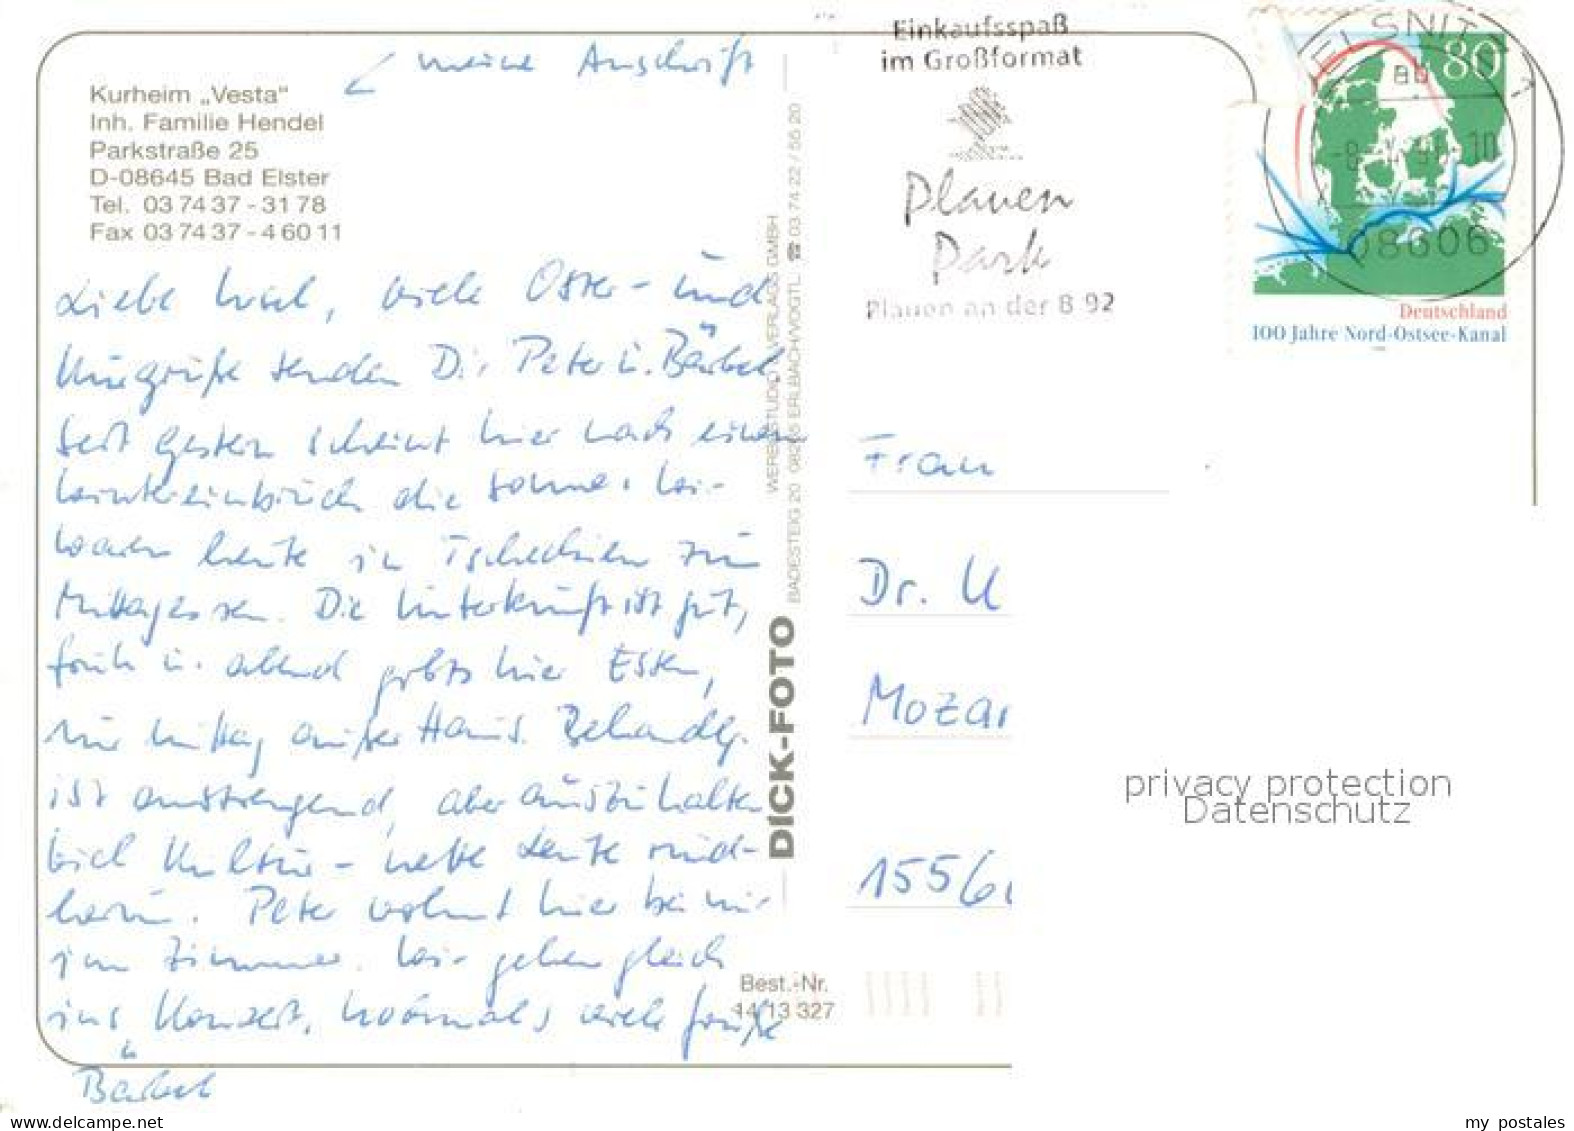 meine Anschrift
Kurheim „Vesta“
Inh. Familie Hendel
Parkstraße 25
D-08645 Bad Elster
Tel. 03 74 37 - 31 78
Fax 03 74 37 - 4 60 11
Liebe viele Oster- und
Kurgrüße senden Dir Peter u. Bärbel,
Seit gestern scheint hier nach einem
Wintereinbruch die Sonne. Wir
waren heute in Tschechien zum
Mittagessen. Die Unterkunft ist gut,
früh u. abend gibts hier Essen,
nur Mittag außer Haus. Behandlg.
ist anstrengend, aber auszuhalten
viel Kultur - nette Leute rund-
herum. Peter wohnt hier bei mir
im Zimmer. Wir gehen gleich
ins Konzert. Nochmals viele Grüße
Bärbel
WERBESTUDIO VERLAGS GMBH
BADESTEIG 20 08265 ERLBACH/VOGTL. ☎ 03 74 22 / 55 20
DICK-FOTO
Best.-Nr.
14/13 327
Einkaufsspaß
im Großformat
Plauen
Park
Plauen an der B 92
OELSNITZ
08606
80
Deutschland
100 Jahre Nord-Ostsee-Kanal
Frau
Dr. U
Mozar
1556
privacy protection
Datenschutz
my postales